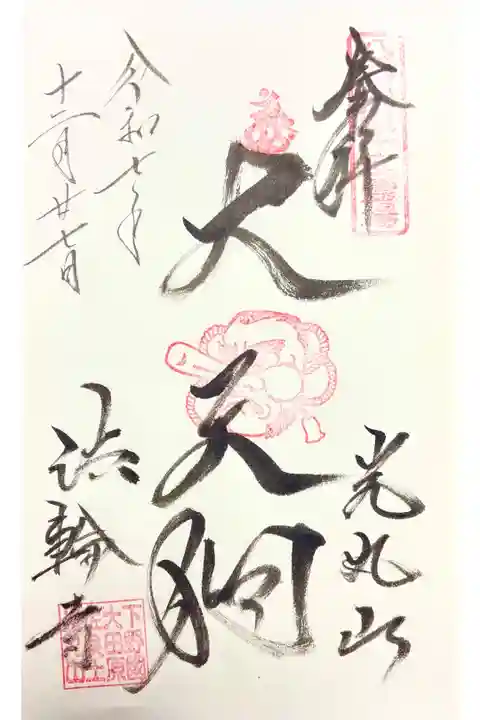 奉拝
光丸山
大天狗
法輪寺
令和七年
十二月廿七日
下野国
大田原